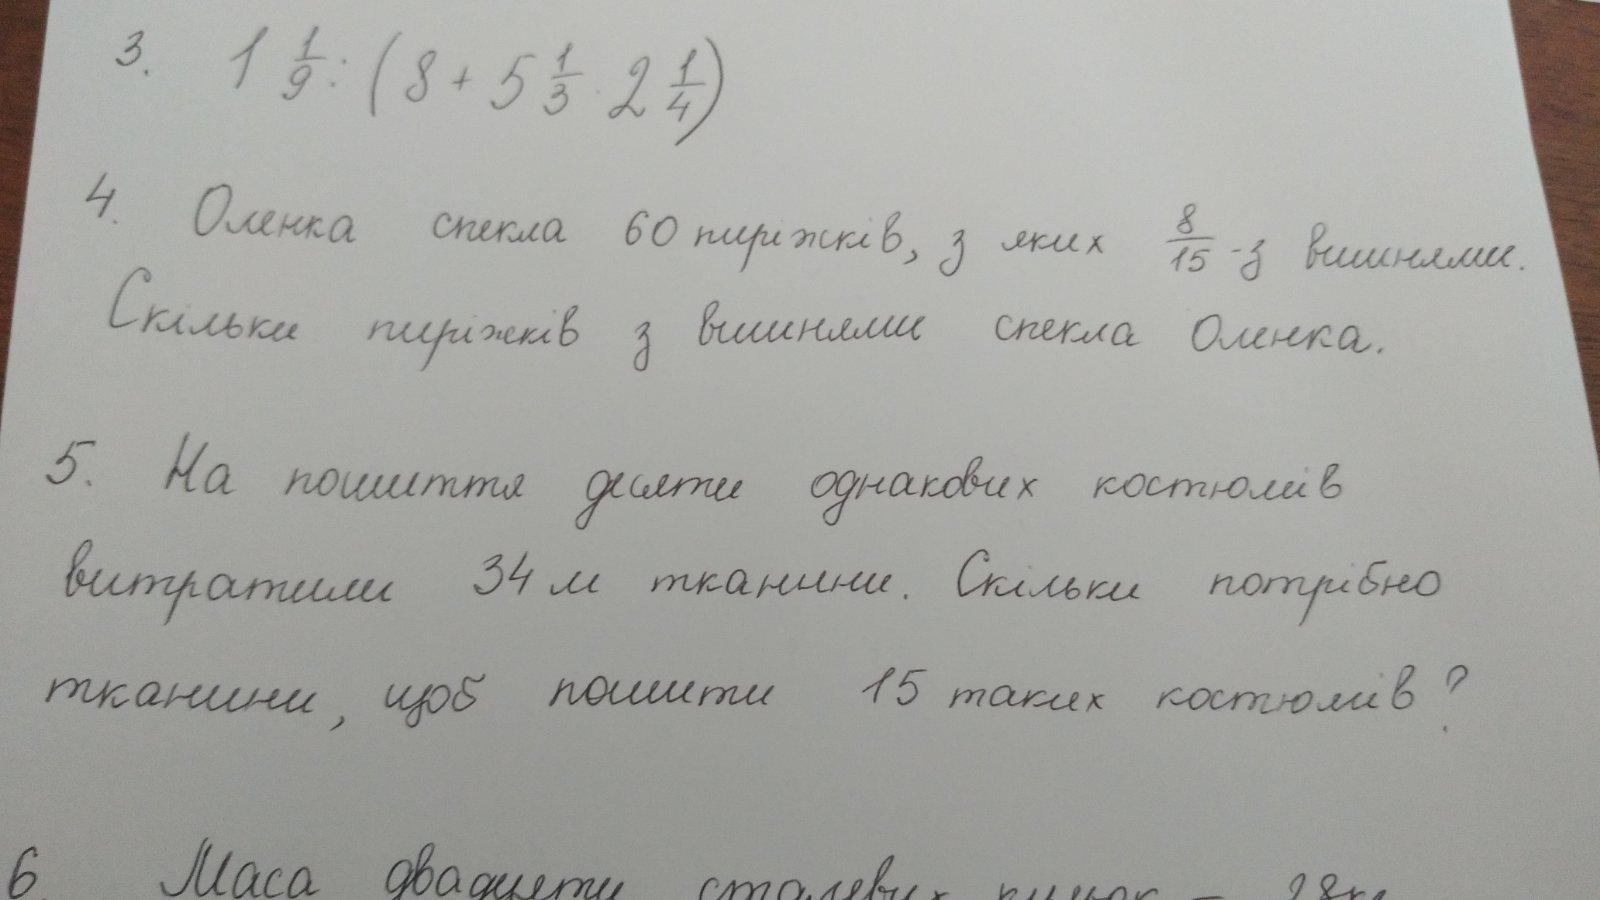 3. 1 1/9 : (8 + 5 1/3 · 2 1/4)
4. Оленка спекла 60 пиріжків, з яких 8/15 - з вишнями.
Скільки пиріжків з вишнями спекла Оленка.
5. На пошиття десяти однакових костюмів
витратили 34 м тканини. Скільки потрібно
тканини, щоб пошити 15 таких костюмів?
6. Маса двадцяти сталевих